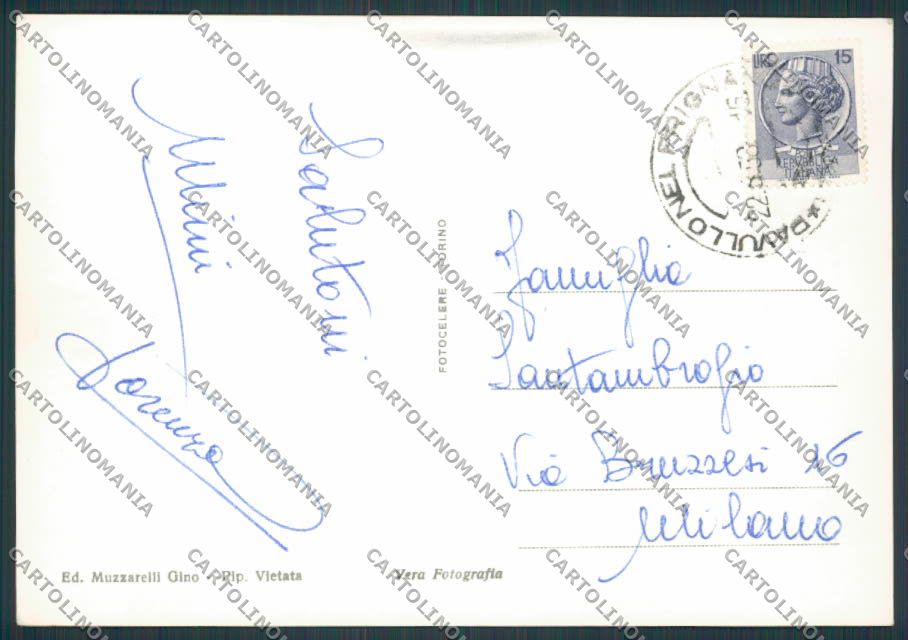 Salutoni
Mimi
Lorenza
FOTOCELERE - TORINO
LIRE 15
REPUBBLICA
ITALIANA
PAVULLO NEL FRIGNANO
Famiglia
Santambrogio
Via Bruzzesi 16
Milano
Ed. Muzzarelli Gino - Rip. Vietata
Vera Fotografia
CARTOLINOMANIA